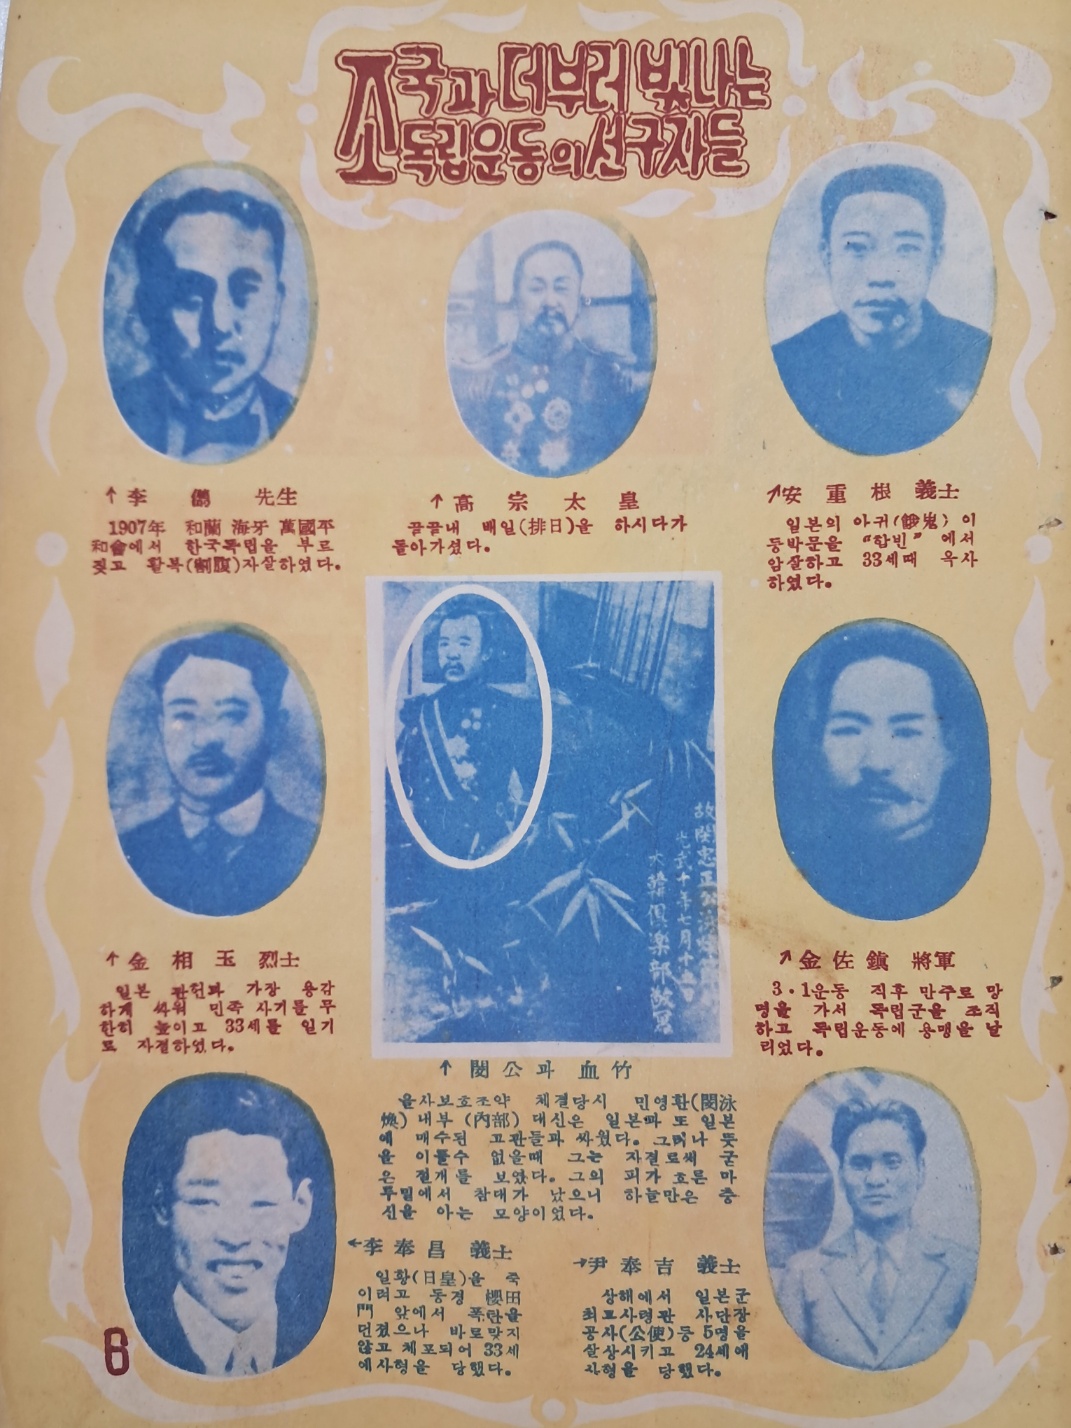 조국과 더부러 빛나는
독립운동의 선구자들
↑李 儁 先生
1907年 和蘭 海牙 萬國平
和會에서 한국독립을 부르
짖고 활복(割腹)자살하였다.
↑高 宗 太 皇
끝끝내 배일(排日)을 하시다가
돌아가셨다.
↗安 重 根 義士
일본의 아귀(餓鬼) 이
등박문을 “합빈” 에서
암살하고 33세때 옥사
하였다.
↑金 相 玉 烈士
일본 관헌과 가장 용감
하게 싸워 민족 사기를 무
한히 높이고 33세를 일기
로 자결하였다.
故閔忠正公
光武十年七月十五日
大韓俱樂部敬寫
↗金 佐 鎭 將軍
3·1운동 직후 만주로 망
명을 가서 독립군을 조직
하고 독립운동에 용맹을 날
리었다.
↑閔公과 血竹
을사보호조약 체결당시 민영환(閔泳
煥) 내부 (內部) 대신은 일본과 또 일본
에 매수된 고관들과 싸웠다. 그러나 뜻
을 이룰수 없을때 그는 자결로써 굳
은 절개를 보였다. 그의 피가 흐른 마
루밑에서 참대가 났으니 하늘만은 충
신을 아는 모양이었다.
←李 奉 昌 義士
일황(日皇)을 죽
이려고 동경 櫻田
門 앞에서 폭탄을
던졌으나 바로맞지
않고 체포되어 33세
에사형을 당했다.
→尹 奉 吉 義士
상해에서 일본군
최고사령관 사단장
공사(公使)등 5명을
살상시키고 24세에
사형을 당했다.
6